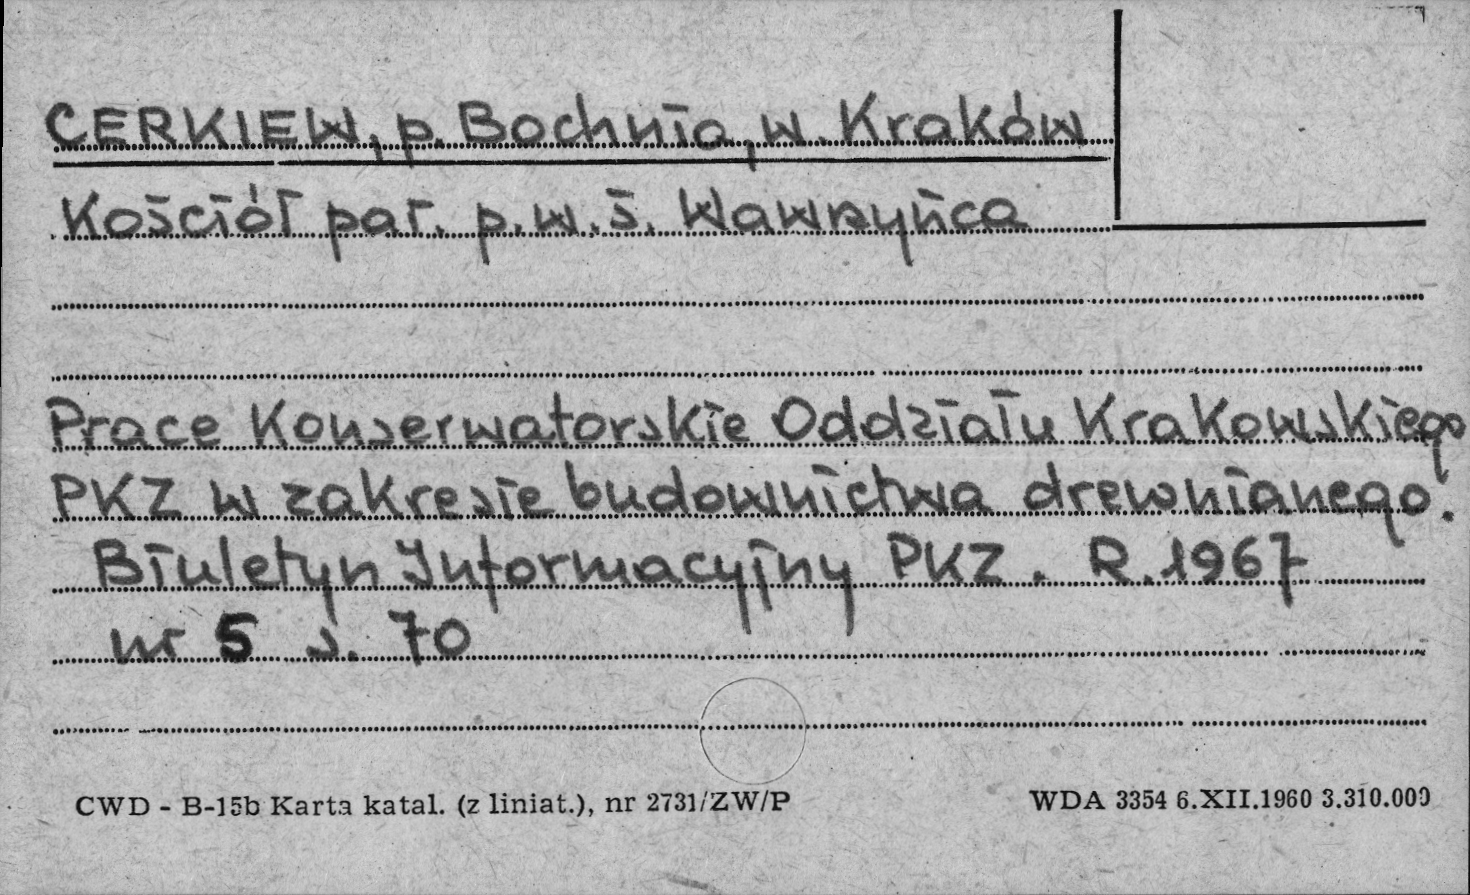 CERKIEW, p. Bochnia, w. Kraków
Kościół par. p.w. ś. Wawrzyńca
Prace Konserwatorskie Oddziału Krakowskiego
PKZ w zakresie budownictwa drewnianego.
Biuletyn Informacyjny PKZ. R. 1967
nr 5 s. 70
CWD - B-15b Karta katal. (z liniat.), nr 2731/ZW/P
WDA 3354 6.XII.1960 3.310.000